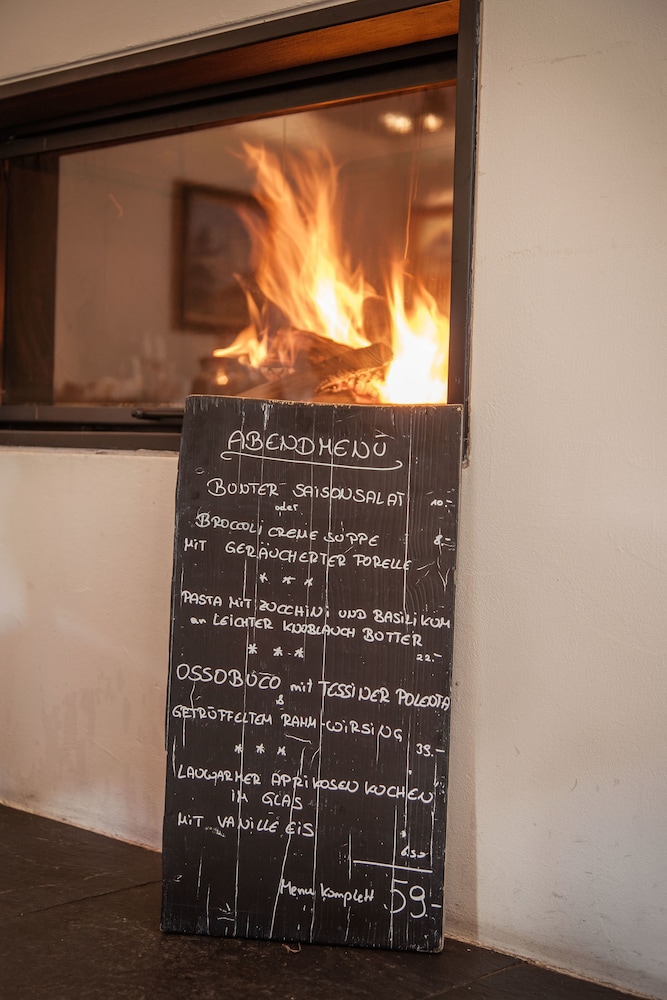 ABENDMENÜ
BUNTER SAISONSALAT 10.-
oder
BROCCOLI CREME SUPPE 8.-
MIT GERÄUCHERTER FORELLE
* * *
PASTA MIT ZUCCHINI UND BASILIKUM
an LEICHTER KNOBLAUCH BUTTER
22.-
* * *
OSSOBUCO mit TESSINER POLENTA
&
GETRÜFFELTEM RAHM-WIRSING
39.-
* * *
LAUWARMER APRIKOSEN KUCHEN
IM GLAS
MIT VANILLE EIS
Menu Komplett 59.-